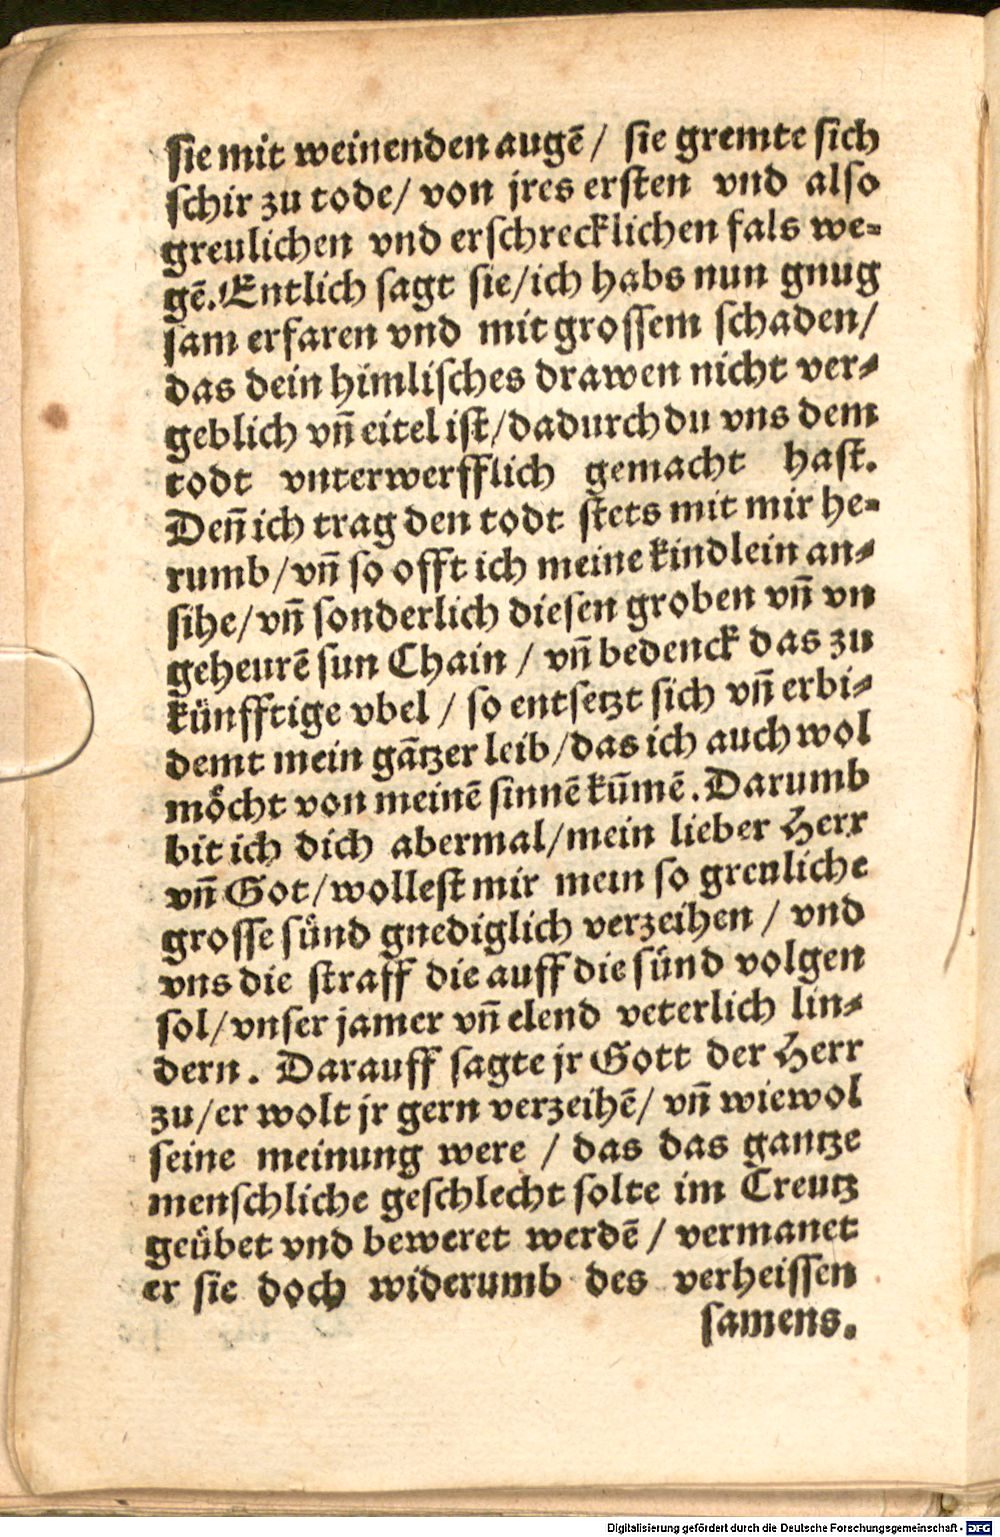 sie mit weinenden augē / sie gremte sich
schir zu tode / von jres ersten vnd also
greulichen vnd erschrecklichen fals we-
gē. Entlich sagt sie / ich habs nun gnug
sam erfaren vnd mit grossem schaden /
das dein himlisches drawen nicht ver-
geblich vn̄ eitel ist / dadurch du vns dem
todt vnterwerfflich gemacht hast.
Den̄ ich trag den todt stets mit mir he-
rumb / vn̄ so offt ich meine kindlein an-
sihe / vn̄ sonderlich diesen groben vn̄ vn
geheurē sun Chain / vn̄ bedenck das zu
künfftige vbel / so entsetzt sich vn̄ erbi-
demt mein gātzer leib / das ich auch wol
möcht von meinē sinnē kūmē. Darumb
bit ich dich abermal / mein lieber Herr
vn̄ Got / wollest mir mein so greuliche
grosse sünd gnediglich verzeihen / vnd
vns die straff die auff die sünd volgen
sol / vnser jamer vn̄ elend veterlich lin-
dern. Darauff sagte jr Gott der Herr
zu / er wolt jr gern verzeihē / vn̄ wiewol
seine meinung were / das das gantze
menschliche geschlecht solte im Creutz
geübet vnd beweret werdē / vermanet
er sie doch widerumb des verheissen
samens.
Digitalisierung gefördert durch die Deutsche Forschungsgemeinschaft - DFG